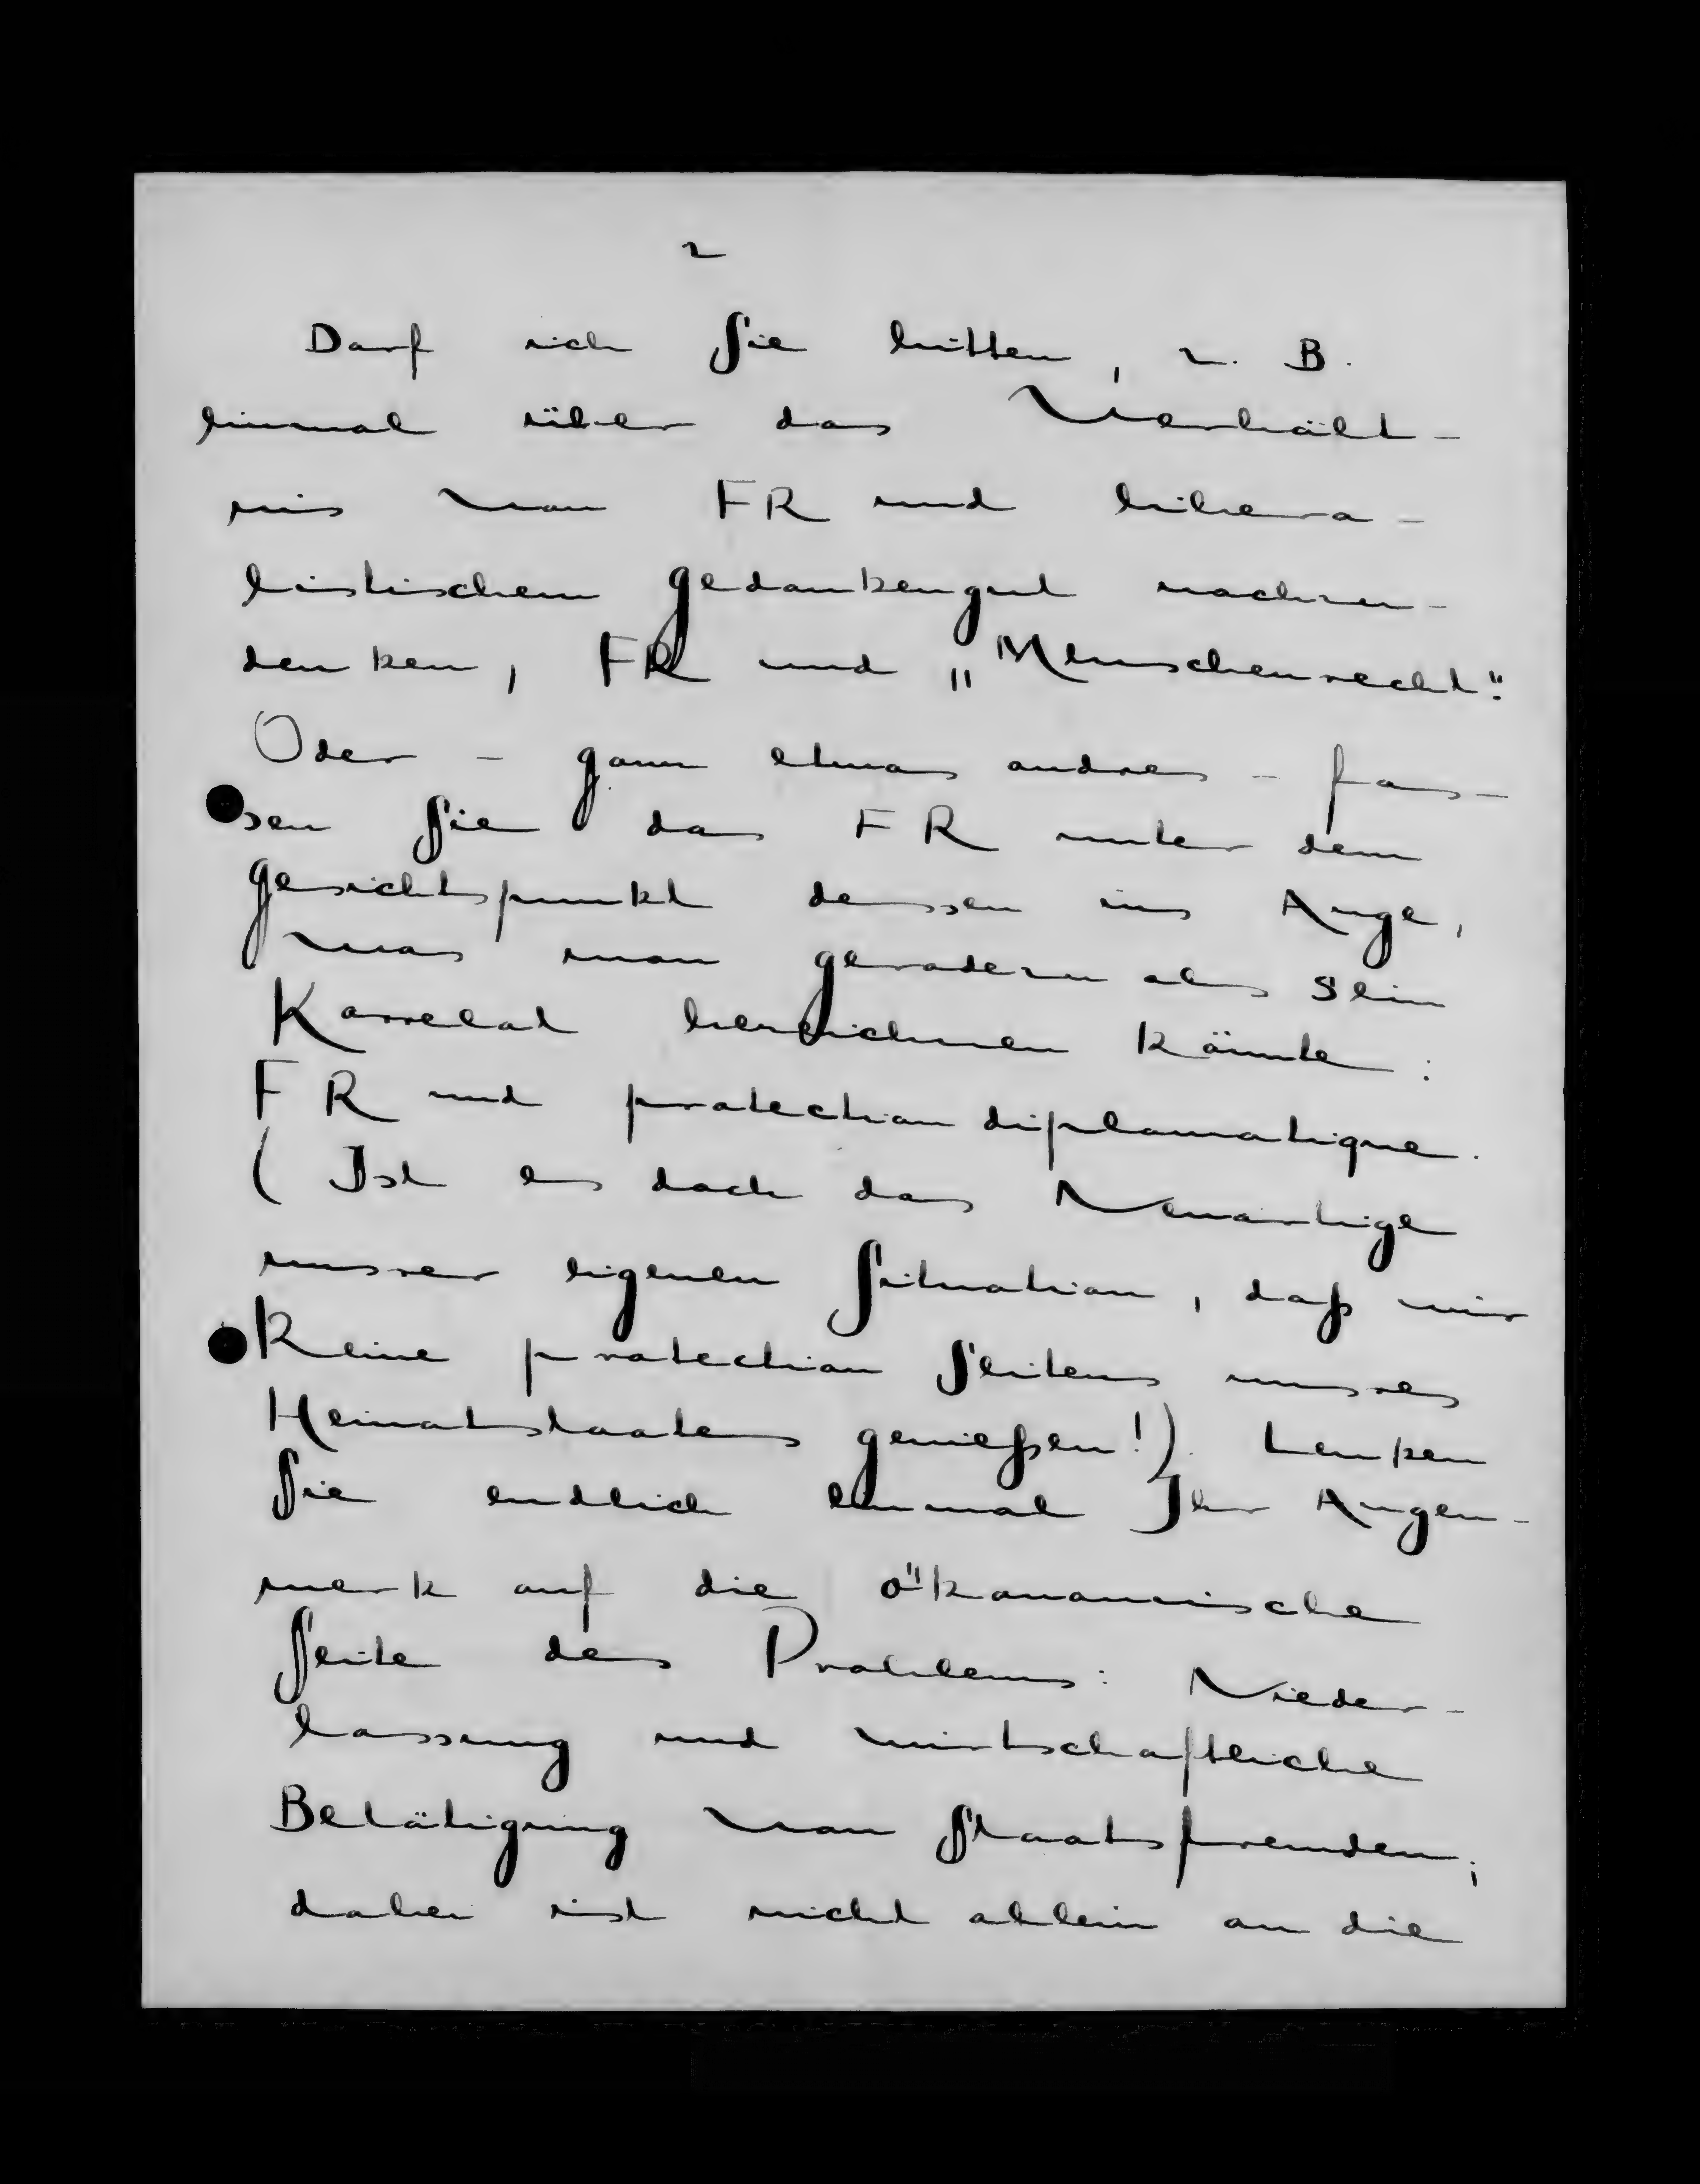 2
Darf ich Sie bitten, z. B.
einmal über das Verhält-
nis von FR und libera-
listischem Gedankengut nachzu-
denken, FR und „Menschenrecht".
Oder - ganz etwas andres - fas-
sen Sie das FR unter dem
Gesichtspunkt dessen ins Auge,
was man geradezu als sein
Korrelat bezeichnen könnte:
FR und protection diplomatique.
(Ist es doch das Neuartige
unsrer eigenen Situation, daß wir
keine protection seitens unsres
Heimatstaates genießen!). Lenken
Sie endlich einmal Ihr Augen-
merk auf die ökonomische
Seite des Problems: Nieder-
lassung und wirtschaftliche
Betätigung von Staatsfremden;
dabei ist nicht allein an die